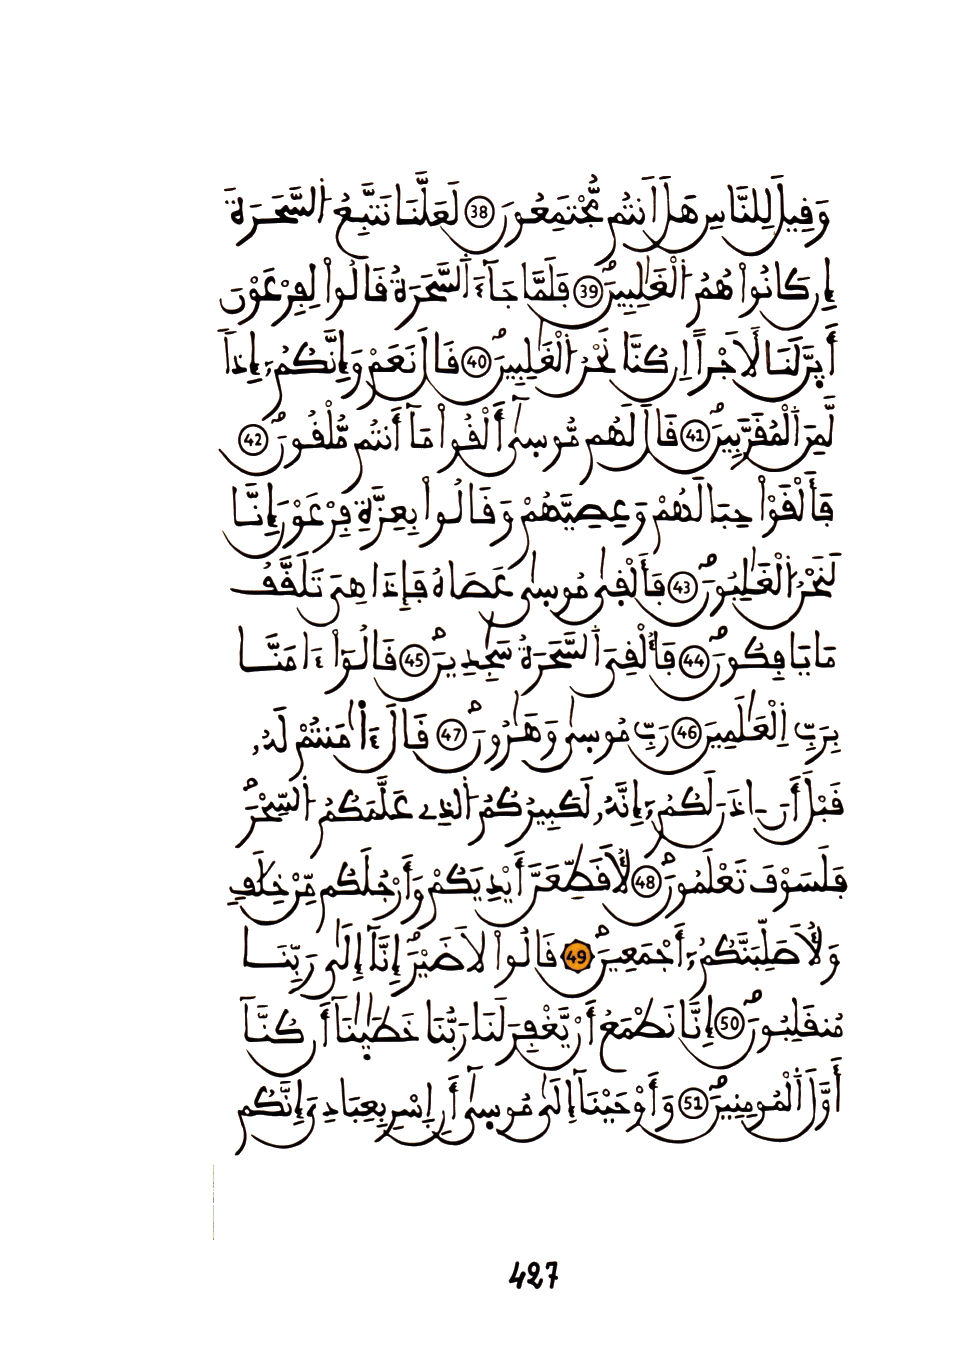 وَقِيلَ لِلنَّاسِ هَلَ اَنتُم مُّجْتَمِعُونَ 38 لَعَلَّنَا نَتَّبِعُ اُ۬لسَّحَرَةَ
إِن كَانُواْ هُمُ اُ۬لْغَٰلِبِينَۖ 39 فَلَمَّا جَآءَ اَ۬لسَّحَرَةُ قَالُواْ لِفِرْعَوْنَ
أَئِنَّ لَنَا لَأَجْراً اِن كُنَّا نَحْنُ اُ۬لْغَٰلِبِينَۖ 40 قَالَ نَعَمْ وَإِنَّكُمُۥٓ إِذاٗ
لَّمِنَ اَ۬لْمُقَرَّبِينَۖ 41 قَالَ لَهُم مُّوس۪ىٰٓ أَلْقُواْ مَآ أَنتُم مُّلْقُونَۖ 42
فَأَلْقَوْاْ حِبَالَهُمْ وَعِصِيَّهُمْ وَقَالُواْ بِعِزَّةِ فِرْعَوْنَ إِنَّا
لَنَحْنُ اُ۬لْغَٰلِبُونَۖ 43 فَأَلْق۪ىٰ مُوس۪ىٰ عَصَاهُ فَإِذَا هِيَ تَلَقَّفُ
مَا يَافِكُونَۖ 44 فَأُلْقِيَ اَ۬لسَّحَرَةُ سَٰجِدِينَۖ 45 قَالُوٓاْ ءَامَنَّا
بِرَبِّ اِ۬لْعَٰلَمِينَ 46 رَبِّ مُوس۪ىٰ وَهَٰرُونَۖ 47 قَالَ ءَا۬مَنتُمْ لَهُۥ
قَبْلَ أَنَ اٰذَنَ لَكُمُۥٓ إِنَّهُۥ لَكَبِيرُكُمُ اُ۬لذِے عَلَّمَكُمُ اُ۬لسِّحْرَۖ
فَلَسَوْفَ تَعْلَمُونَۖ 48 لَأُقَطِّعَنَّ أَيْدِيَكُمْ وَأَرْجُلَكُم مِّنْ خِلَٰفٖ
وَلَأُصَلِّبَنَّكُمُۥٓ أَجْمَعِينَۖ 49 قَالُواْ لَا ضَيْرَۖ إِنَّآ إِلَىٰ رَبِّنَا
مُنقَلِبُونَۖ 50 إِنَّا نَطْمَعُ أَنْ يَّغْفِرَ لَنَا رَبُّنَا خَطَٰيٰ۪نَآ أَن كُنَّآ
أَوَّلَ اَ۬لْمُومِنِينَۖ 51 وَأَوْحَيْنَآ إِلَىٰ مُوس۪ىٰٓ أَنِ اِسْرِ بِعِبَادِيَ إِنَّكُم
427